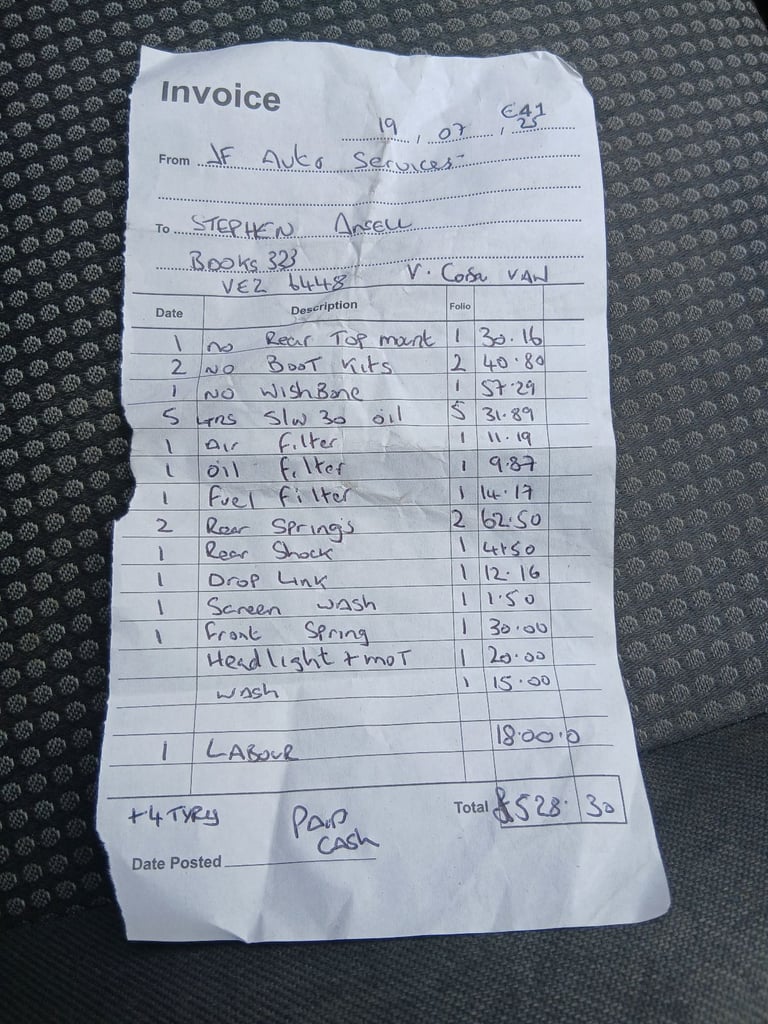 Invoice
€41
19, 07, 25
From JF Auto Services
To STEPHEN Ansell
Books 323
VEZ 6448 V. Corsa VAN
Date Description Folio
1 no Rear Top mount 1 30.16
2 NO BOOT Kits 2 40.80
1 NO WishBone 1 57.29
5 LTRS 5/w 30 oil 5 31.89
1 Air filter 1 11.19
1 oil filter 1 9.87
1 fuel filter 1 14.17
2 Rear Spring's 2 62.50
1 Rear Shock 1 41.50
1 Drop Link 1 12.16
1 Screen wash 1 1.50
1 front Spring 1 30.00
Headlight + moT 1 20.00
wash 1 15.00
1 LABOUR 18.00.0
+4 TYRES PAID CASH Total £528. 30
Date Posted